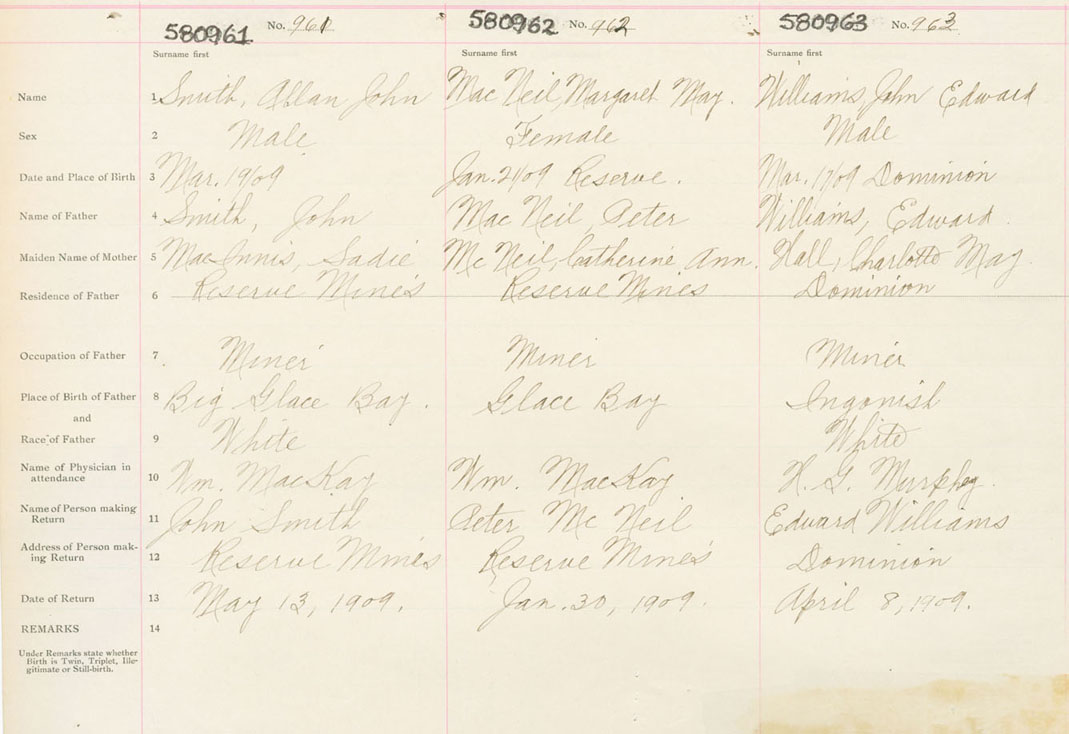 580961 No. 961 580962 No. 962 580963 No. 963
Surname first Surname first Surname first
Name 1 Smith, Allan John Mac Neil, Margaret May. Williams, John Edward
Sex 2 Male Female Male
Date and Place of Birth 3 Mar. 19/09 Jan. 21/09 Reserve. Mar. 17/09 Dominion
Name of Father 4 Smith, John Mac Neil, Peter Williams, Edward.
Maiden Name of Mother 5 MacInnis, Sadie Mc Neil, Catherine Ann. Hall, Charlotte May
Residence of Father 6 Reserve Mines Reserve Mines Dominion
Occupation of Father 7 Miner Miner Miner
Place of Birth of Father 8 Big Glace Bay. Glace Bay Ingonish
and
Race of Father 9 White White
Name of Physician in
attendance 10 Wm. MacKay Wm. MacKay H. G. Murphy.
Name of Person making
Return 11 John Smith Peter Mc Neil Edward Williams
Address of Person mak-
ing Return 12 Reserve Mines Reserve Mines Dominion
Date of Return 13 May 13, 1909. Jan. 30, 1909. April 8, 1909.
REMARKS 14
Under Remarks state whether
Birth is Twin, Triplet, Ille-
gitimate or Still-birth.